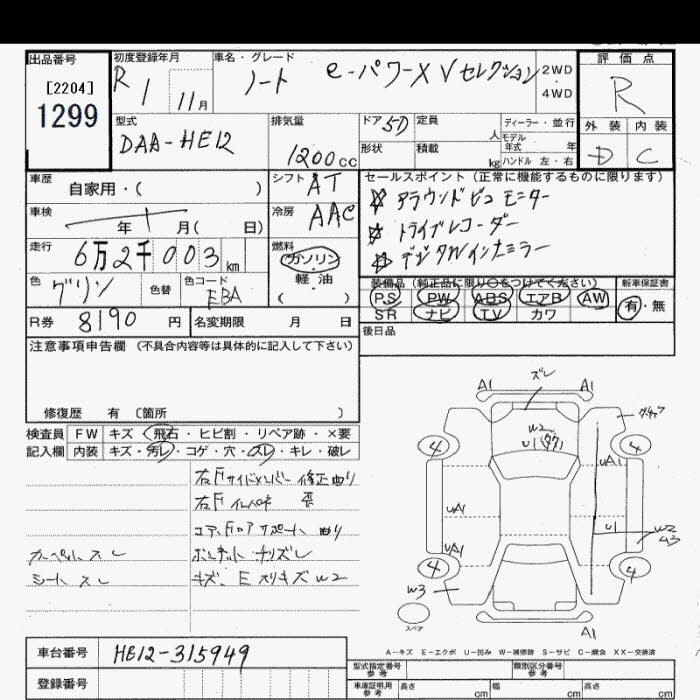 出品番号 初度登録年月 車名・グレード 評価点
[2204]
1299
R 1 11月 ノート e-パワーX Vセレクション 2WD・4WD R
外装 内装
D C
型式 排気量 ドア 5D 定員 人 ディーラー・並行
DAA-HE12 1200cc 形状 積載 kg モデル年式 年
ハンドル 左・右
車歴 自家用・( ) シフト AT セールスポイント (正常に機能するものに限ります)
車検 年 月( 日) 冷房 AAC ☆ アラウンドビュモニター
☆ ドライブレコーダー
走行 6万2千003km 燃料 ガソリン・軽油 ( ) ☆ デジタルインナーミラー
色 グリン 色替 色コード EBA
装備品 (純正品に限り○をつけてください) 新車保証書
PS PW ABS エアB AW 有・無
SR ナビ TV カワ
R券 8190円 名変期限 月 日 後日品
注意事項申告欄 (不具合内容等は具体的に記入して下さい)
修復歴 有 〔箇所 〕
検査員 FW キズ・飛石・ヒビ割・リペア跡・×要
記入欄 内装 キズ・汚レ・コゲ・穴・スレ・キレ・破レ
右Fサイドメンバー 修正曲り
右Fインパネ
コアF ロアサポート 曲り
カーペット スレ ボンネット チリズレ
シート スレ キズ、E スリキズ W2
A1 ズレ A1
W2
U1
4 4
UA1
UA1 U1 W2
UA1
4 4
W3
スペア A1
A-キズ E-エクボ U-凹み W-補修跡 S-サビ C-腐食 XX-交換済
車台番号 HE12-315949
登録番号
型式指定番号 参考 類別区分番号 参考
車庫証明用 参考 長さ cm 幅 cm 高さ cm